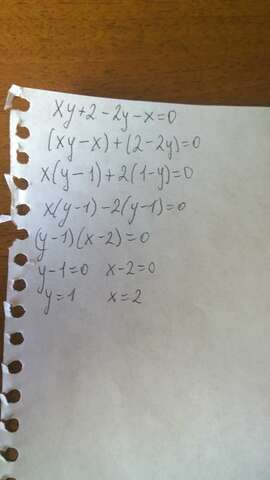 xy+2-2y-x=0
(xy-x)+(2-2y)=0
x(y-1)+2(1-y)=0
x(y-1)-2(y-1)=0
(y-1)(x-2)=0
y-1=0 x-2=0
y=1 x=2